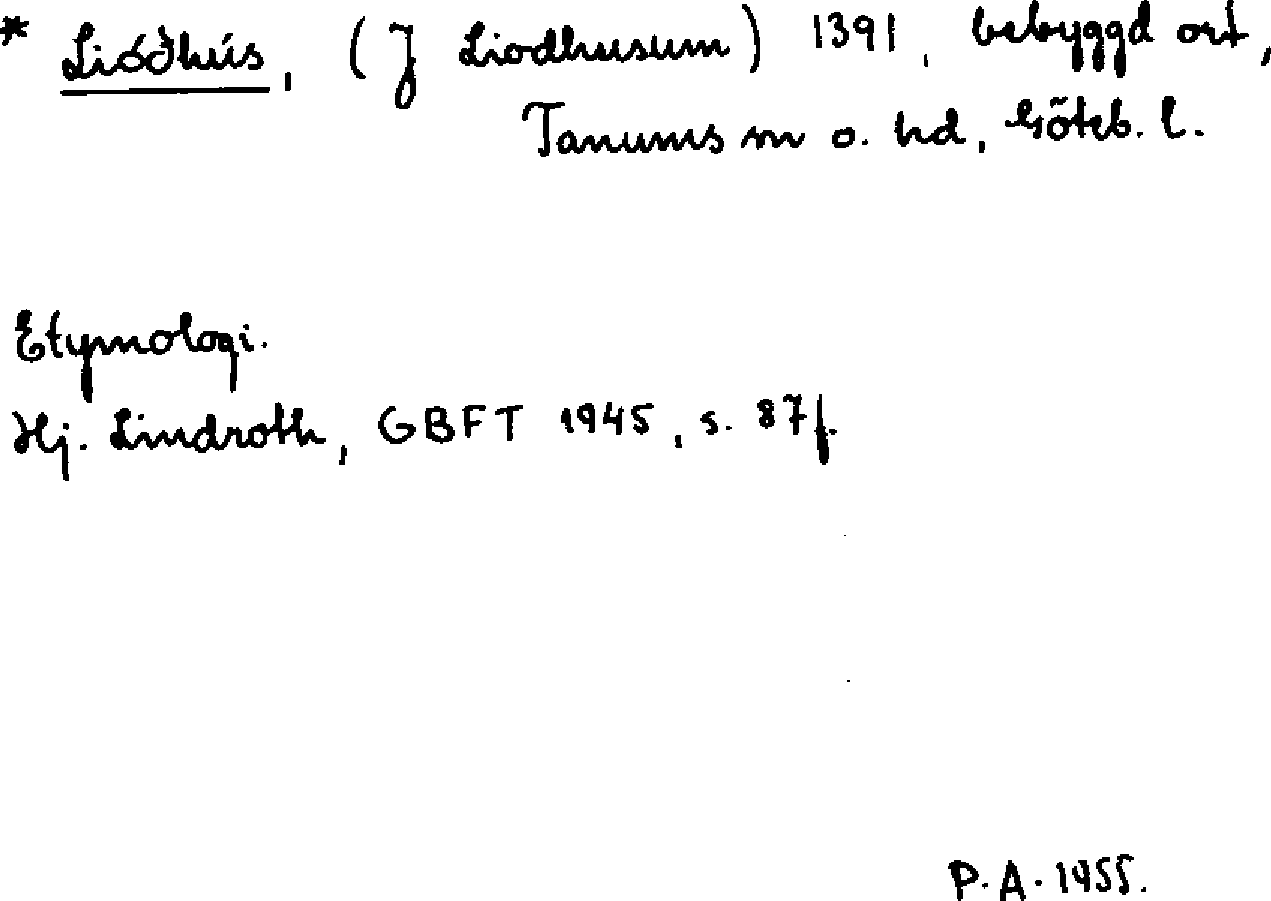 * Lióðhús, (J Liodhusum) 1391, bebyggd ort,
Tanums sn o. hd, Göteb. l.
Etymologi.
Hj. Lindroth, GBFT 1945, s. 87f.
P. A. 1955.